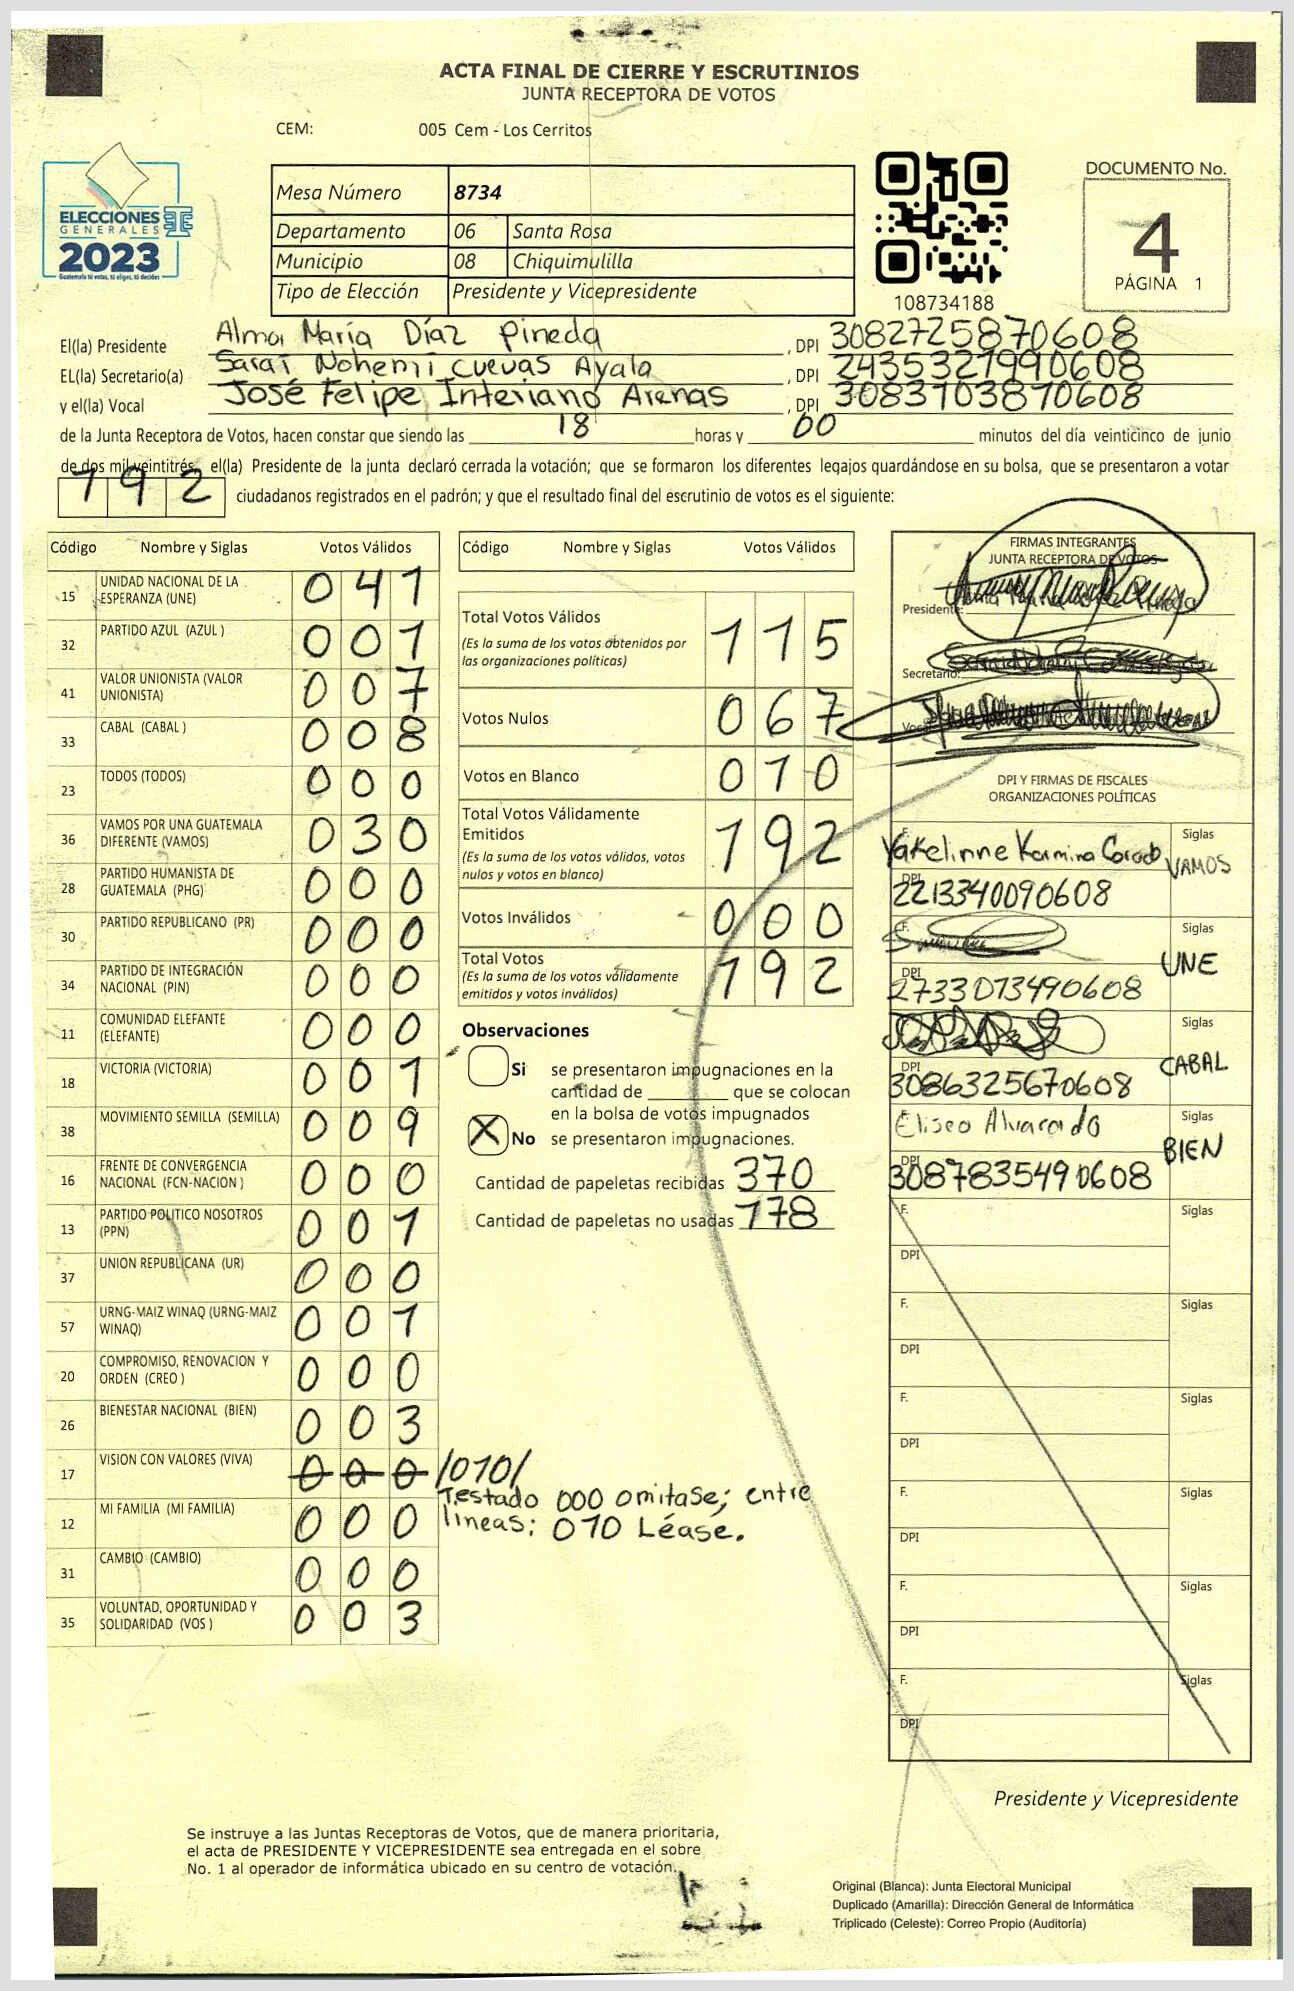 ACTA FINAL DE CIERRE Y ESCRUTINIOS
JUNTA RECEPTORA DE VOTOS
CEM: 005 Cem - Los Cerritos
ELECCIONES
GENERALES
2023
Guatemala tú votas, tú eliges, tú decides
Mesa Número 8734
Departamento 06 Santa Rosa
Municipio 08 Chiquimulilla
Tipo de Elección Presidente y Vicepresidente
108734188
DOCUMENTO No.
4
PÁGINA 1
El(la) Presidente Alma María Díaz Pineda, DPI 3082725870608
EL(la) Secretario(a) Saraí Nohemí cuevas Ayala, DPI 2435321990608
y el(la) Vocal José Felipe Interiano Arenas, DPI 3083103870608
de la Junta Receptora de Votos, hacen constar que siendo las 18 horas y 00 minutos del día veinticinco de junio
de dos mil veintitrés, el(la) Presidente de la junta declaró cerrada la votación; que se formaron los diferentes legajos guardándose en su bolsa, que se presentaron a votar
192 ciudadanos registrados en el padrón; y que el resultado final del escrutinio de votos es el siguiente:
Código Nombre y Siglas Votos Válidos
15 UNIDAD NACIONAL DE LA ESPERANZA (UNE) 041
32 PARTIDO AZUL (AZUL ) 001
41 VALOR UNIONISTA (VALOR UNIONISTA) 007
33 CABAL (CABAL ) 008
23 TODOS (TODOS) 000
36 VAMOS POR UNA GUATEMALA DIFERENTE (VAMOS) 030
28 PARTIDO HUMANISTA DE GUATEMALA (PHG) 000
30 PARTIDO REPUBLICANO (PR) 000
34 PARTIDO DE INTEGRACIÓN NACIONAL (PIN) 000
11 COMUNIDAD ELEFANTE (ELEFANTE) 000
18 VICTORIA (VICTORIA) 001
38 MOVIMIENTO SEMILLA (SEMILLA) 009
16 FRENTE DE CONVERGENCIA NACIONAL (FCN-NACION ) 000
13 PARTIDO POLITICO NOSOTROS (PPN) 001
37 UNION REPUBLICANA (UR) 000
57 URNG-MAIZ WINAQ (URNG-MAIZ WINAQ) 001
20 COMPROMISO, RENOVACION Y ORDEN (CREO ) 000
26 BIENESTAR NACIONAL (BIEN) 003
17 VISION CON VALORES (VIVA) 000 /010/
Testado 000 omitase; entre
lineas: 010 Léase.
12 MI FAMILIA (MI FAMILIA) 000
31 CAMBIO (CAMBIO) 000
35 VOLUNTAD, OPORTUNIDAD Y SOLIDARIDAD (VOS ) 003
Código Nombre y Siglas Votos Válidos
Total Votos Válidos 115
(Es la suma de los votos obtenidos por
las organizaciones políticas)
Votos Nulos 067
Votos en Blanco 010
Total Votos Válidamente
Emitidos 192
(Es la suma de los votos válidos, votos
nulos y votos en blanco)
Votos Inválidos 000
Total Votos 192
(Es la suma de los votos válidamente
emitidos y votos inválidos)
Observaciones
Si se presentaron impugnaciones en la
cantidad de ________ que se colocan
en la bolsa de votos impugnados
X No se presentaron impugnaciones.
Cantidad de papeletas recibidas 370
Cantidad de papeletas no usadas 178
FIRMAS INTEGRANTES
JUNTA RECEPTORA DE VOTOS
Presidente:
Secretario:
Vocal
DPI Y FIRMAS DE FISCALES
ORGANIZACIONES POLÍTICAS
F. Yakelinne Karmina Siglas
DPI 2213340090608 VAMOS
F. Siglas
DPI 2733013490608 UNE
Siglas
DPI 3086325670608 CABAL
F. Eliseo Alvarado Siglas
DPI 3087835490608 BIEN
F. Siglas
DPI
F. Siglas
DPI
F. Siglas
DPI
F. Siglas
DPI
F. Siglas
DPI
F. Siglas
DPI
Presidente y Vicepresidente
Se instruye a las Juntas Receptoras de Votos, que de manera prioritaria,
el acta de PRESIDENTE Y VICEPRESIDENTE sea entregada en el sobre
No. 1 al operador de informática ubicado en su centro de votación.
Original (Blanca): Junta Electoral Municipal
Duplicado (Amarilla): Dirección General de Informática
Triplicado (Celeste): Correo Propio (Auditoría)